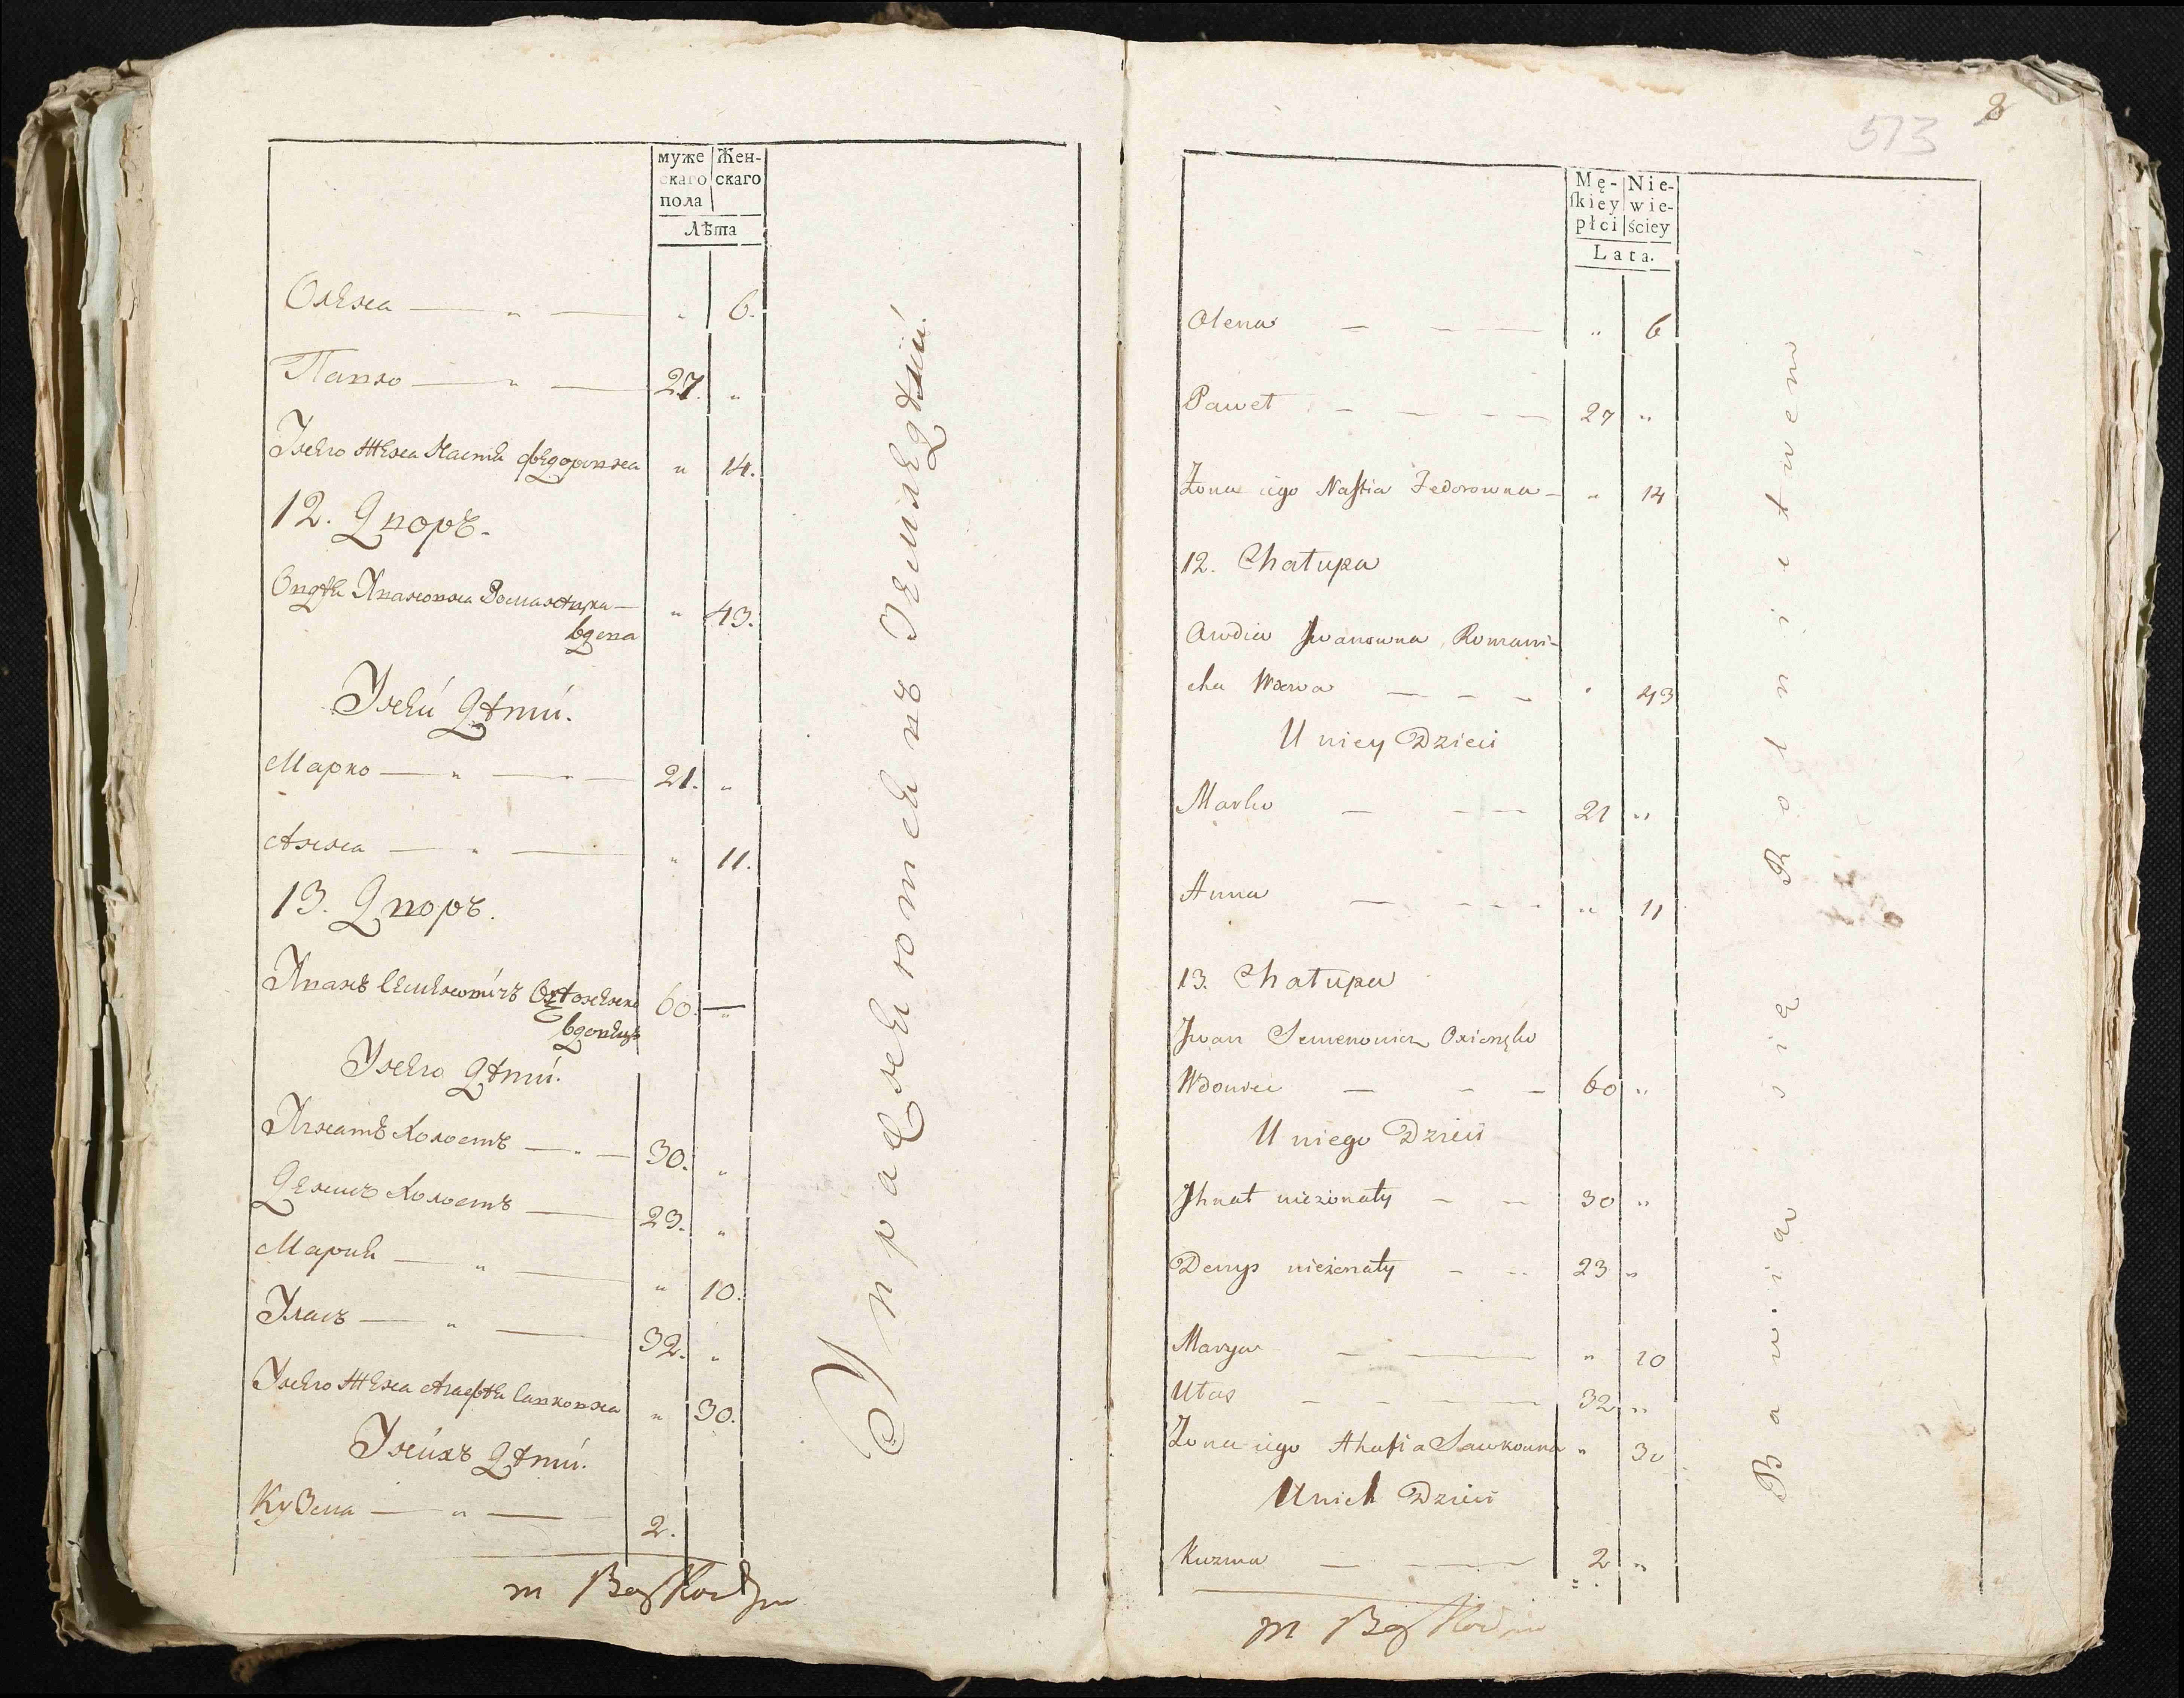 муже
скаго
пола
Жен-
скаго
Лѣта
Олена — „ — „ 6.
Павло — „ — 27. „
Унего Жена Настя Федоровна „ 14.
12. Дворъ.
Овдѣя Ивановна Романиха —
вдова „ 43.
Унеи Дѣти.
Марко — „ — „ — 21. „
Анна — „ — „ 11.
13. Дворъ.
Иванъ Семеновичъ 60. — „
вдовецъ
Унего Дѣти.
Игнатъ Холостъ — „ — 30. „
Денисъ Холостъ — 23. „
Мария — „ — „ 10.
Уласъ — „ — 32. „
Унего Жена Агафѣя Савковна „ 30.
Унихъ Дѣти.
Кузма — „ — 2.
Упражняются въ Земледѣлии.
573
8
Mę-
skiey
płci
Nie-
wie-
ściey
Lata.
Olena — — — „ 6
Paweł — — — — 27 „
Żona iego Nastia Fedorowna — „ 14
12. Chałupa
Awdia Iwanowna Romani-
cha Wdowa — — — „ 43
U niey Dzieci
Marko — — — 21 „
Anna — — — — „ 11
13. Chałupa
Iwan Semenowicz
Wdowiec — — — 60 „
U niego Dzieci
Ihnat nieżonaty — — 30 „
Denys nieżonaty — — 23 „
Marya — — „ 10
Ułas — — — — 32 „
Żona iego Ahafia Sawkowna „ 30
U nich Dzieci
Kuzma — — 2 „
Bawią się Rolnictwem